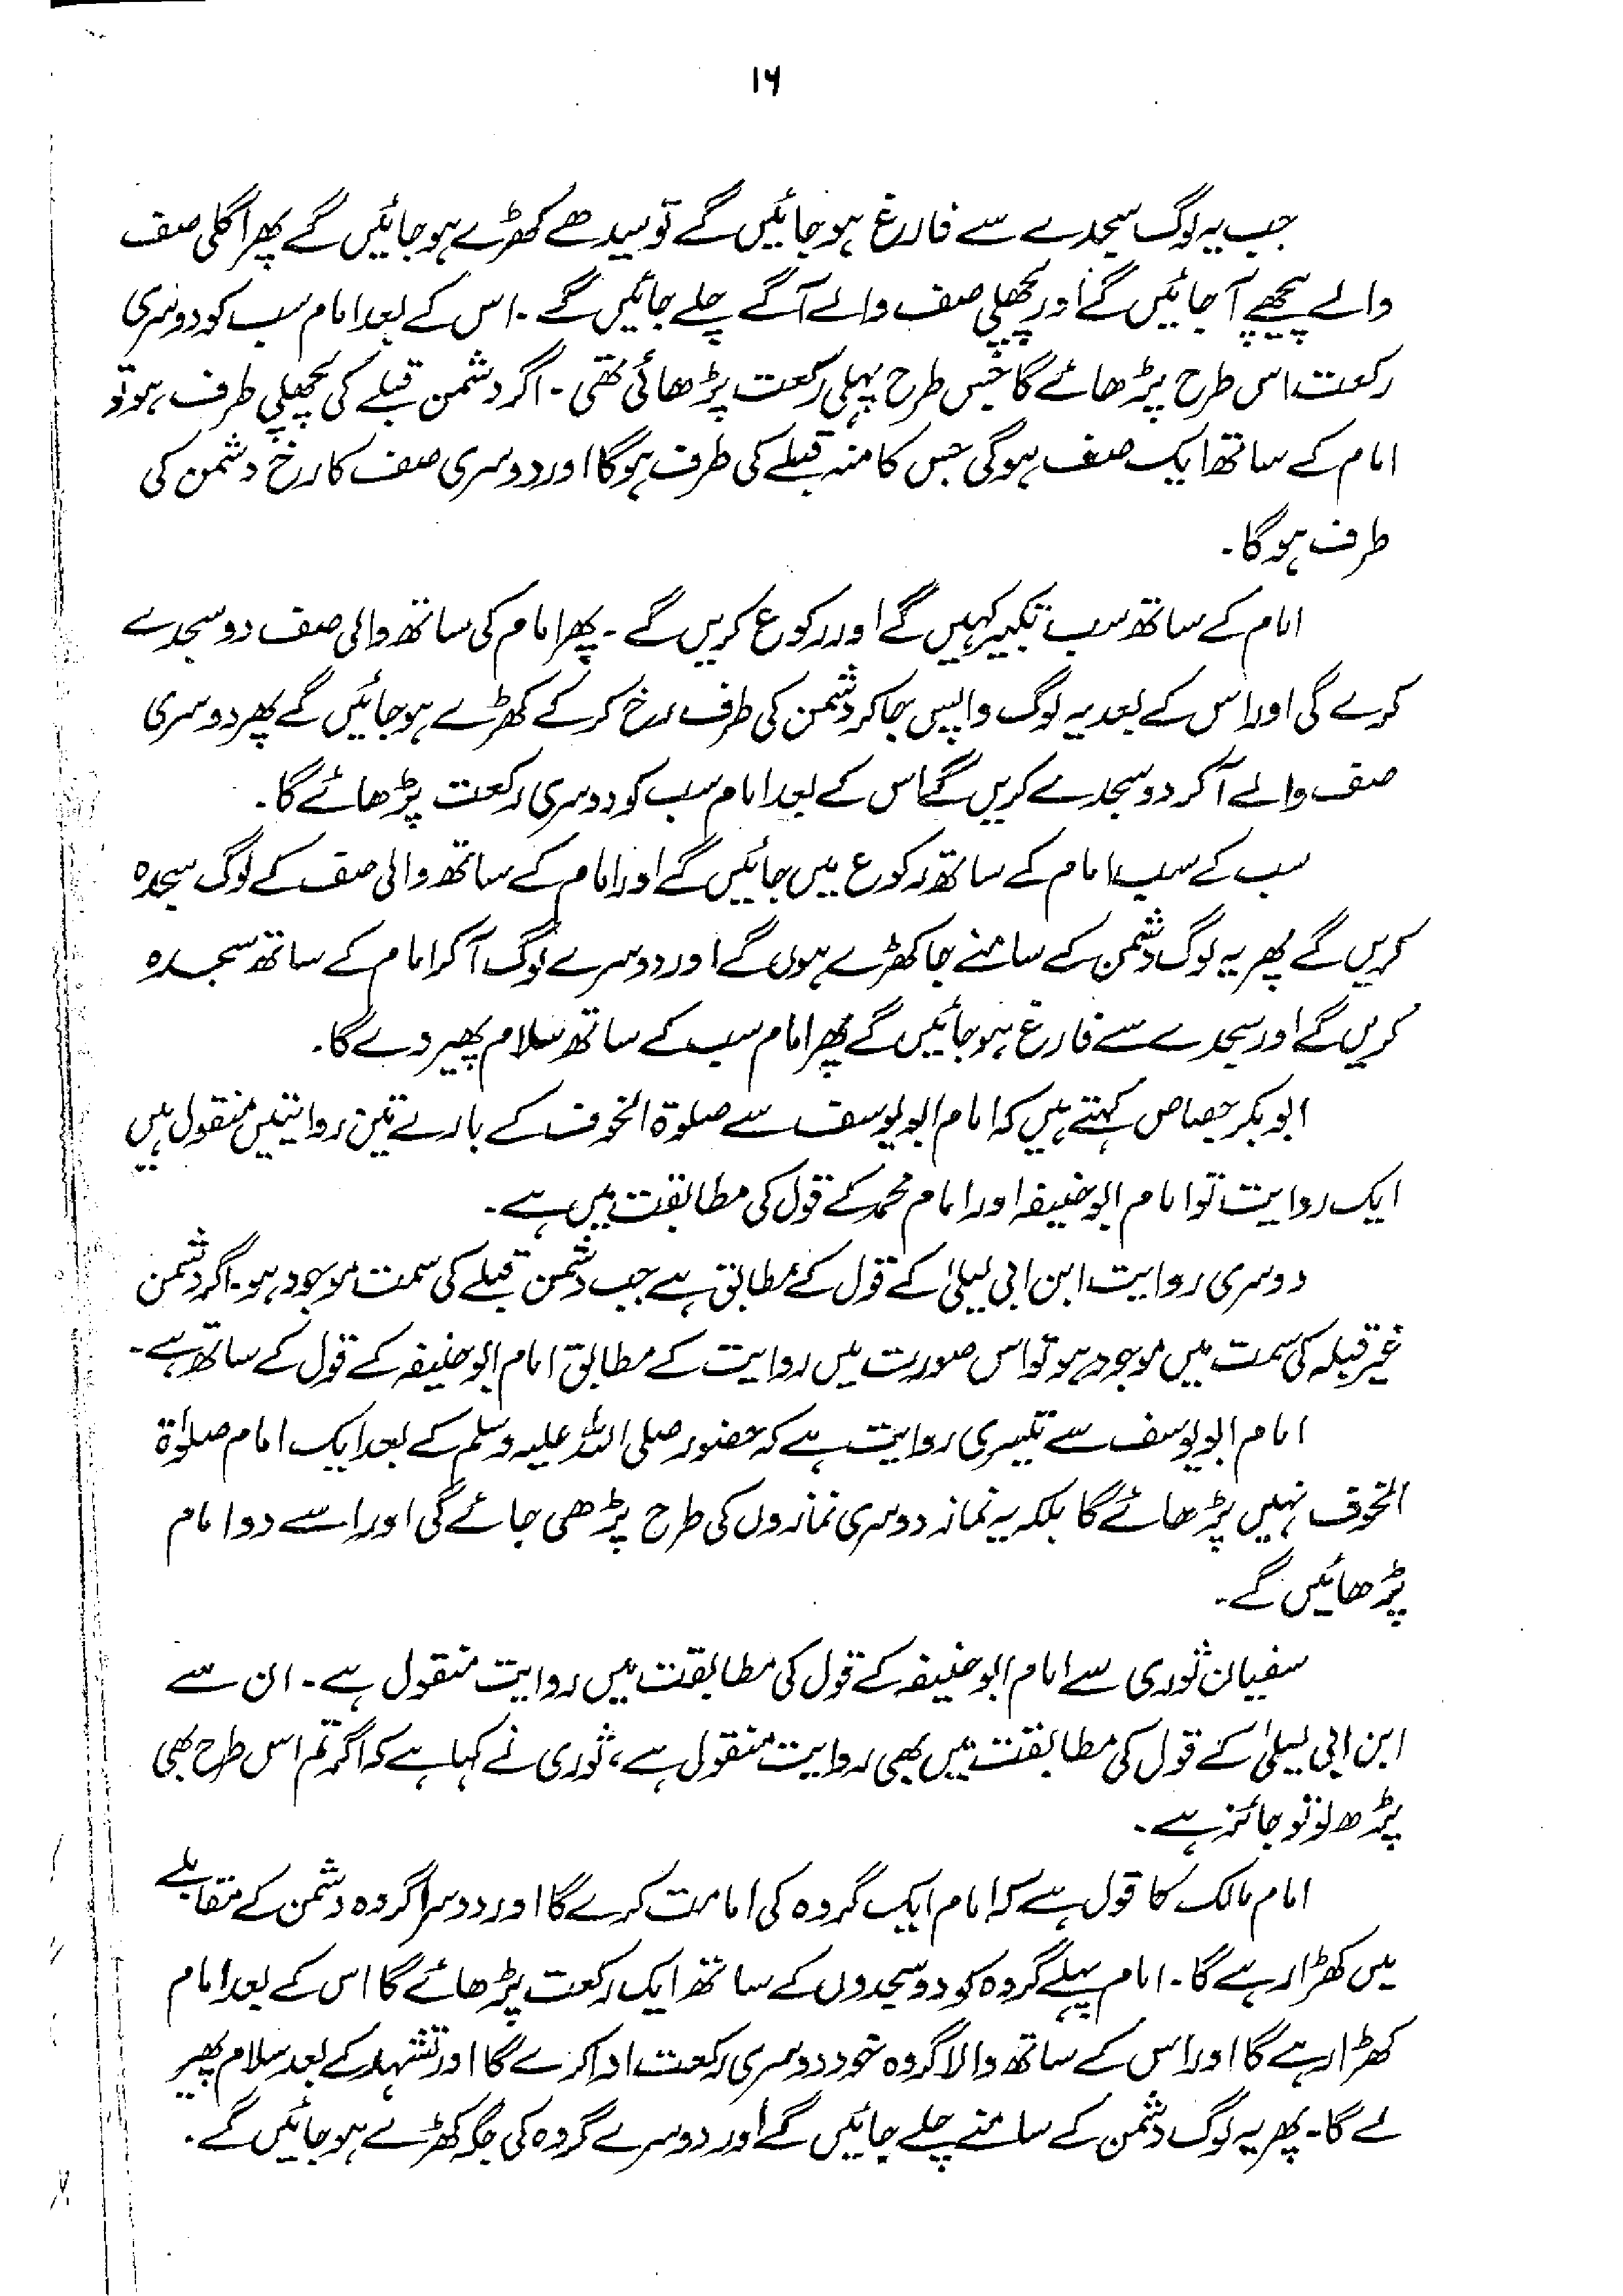 ۱۶
جب یہ لوگ سجدے سے فارغ ہو جائیں گے تو سیدھے کھڑے ہو جائیں گے پھر اگلی صف
والے پیچھے آ جائیں گے اور پچھلی صف والے آگے چلے جائیں گے۔ اس کے بعد امام سب کو دوسری
رکعت اس طرح پڑھائے گا جس طرح پہلی رکعت پڑھائی تھی۔ اگر دشمن قبلے کی پچھلی طرف ہو تو
امام کے ساتھ ایک صف ہوگی جس کا منہ قبلے کی طرف ہوگا اور دوسری صف کا رخ دشمن کی
طرف ہوگا۔
امام کے ساتھ سب تکبیر کہیں گے اور رکوع کریں گے۔ پھر امام کی ساتھ والی صف دو سجدے
کرے گی اور اس کے بعد یہ لوگ واپس جا کر دشمن کی طرف رخ کر کے کھڑے ہو جائیں گے پھر دوسری
صف والے آ کر دو سجدے کریں گے اس کے بعد امام سب کو دوسری رکعت پڑھائے گا۔
سب کے سب امام کے ساتھ رکوع میں جائیں گے اور امام کے ساتھ والی صف کے لوگ سجدہ
کریں گے پھر یہ لوگ دشمن کے سامنے جا کھڑے ہوں گے اور دوسرے لوگ آ کر امام کے ساتھ سجدہ
کریں گے اور سجدے سے فارغ ہو جائیں گے پھر امام سب کے ساتھ سلام پھیر دے گا۔
ابوبکر جصاص کہتے ہیں کہ امام ابو یوسف سے صلوۃ الخوف کے بارے تین روایتیں منقول ہیں
ایک روایت تو امام ابو حنیفہ اور امام محمد کے قول کی مطابقت میں ہے۔
دوسری روایت ابن ابی لیلیٰ کے قول کے مطابق ہے جب دشمن قبلے کی سمت موجود ہو۔ اگر دشمن
غیر قبلہ کی سمت میں موجود ہو تو اس صورت میں روایت کے مطابق امام ابو حنیفہ کے قول کے ساتھ ہے۔
امام ابو یوسف سے تیسری روایت ہے کہ حضور صلی اللہ علیہ وسلم کے بعد ایک امام صلوٰۃ
الخوف نہیں پڑھائے گا بلکہ یہ نماز دوسری نمازوں کی طرح پڑھی جائے گی اور اسے دو امام
پڑھائیں گے۔
سفیان ثوری سے امام ابو حنیفہ کے قول کی مطابقت میں روایت منقول ہے۔ ان سے
ابن ابی لیلیٰ کے قول کی مطابقت میں بھی روایت منقول ہے، ثوری نے کہا ہے کہ اگر تم اس طرح بھی
پڑھ لو تو جائز ہے۔
امام مالک کا قول ہے کہ امام ایک گروہ کی امامت کرے گا اور دوسرا گروہ دشمن کے مقابلے
میں کھڑا رہے گا۔ امام پہلے گروہ کو دو سجدوں کے ساتھ ایک رکعت پڑھائے گا اس کے بعد امام
کھڑا رہے گا اور اس کے ساتھ والا گروہ خود دوسری رکعت ادا کرے گا اور تشہد کے بعد سلام پھیر
لے گا۔ پھر یہ لوگ دشمن کے سامنے چلے جائیں گے اور دوسرے گروہ کی جگہ کھڑے ہو جائیں گے۔